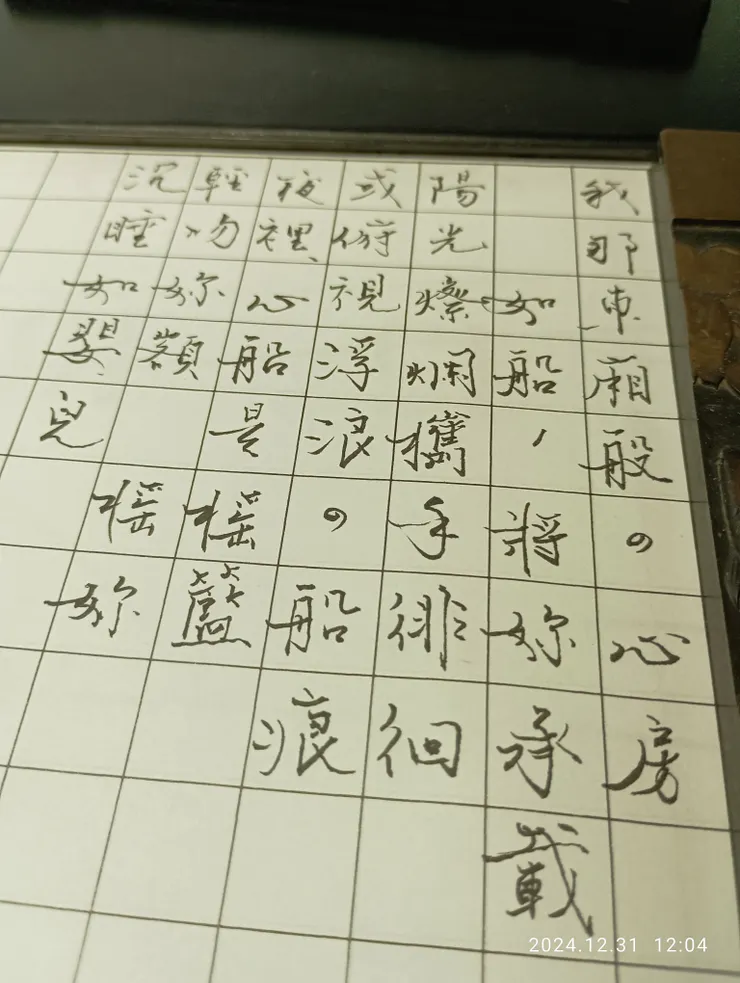 我那東廂般。心房
如船,將妳承載
陽光燦爛攜手徘徊
或俯視浮浪。船痕
夜裡心船是搖籃
輕吻妳額 搖妳
沉睡如嬰兒
2024.12.31 12:04